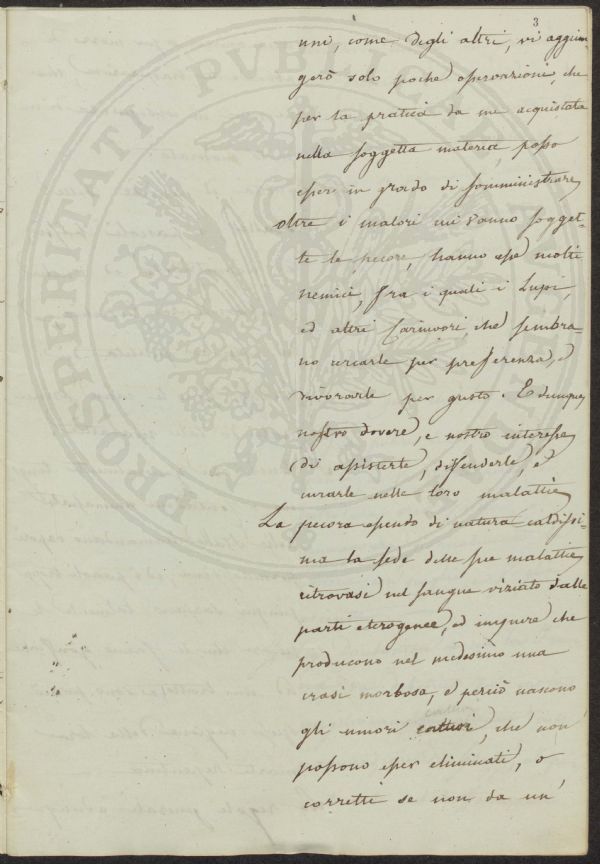 3
uni, come degli altri, vi aggiun=
gerò solo poche osservazioni, che
per la pratica da me acquistata
nella soggetta materia, posso
esser in grado di somministrare,
oltre i malori cui vanno sogget=
te le pecore, hanno esse molti
nemici, fra i quali i Lupi,
ed altri Carnivori, che sembra=
no cercarle per preferenza, e
divorarle per gusto. E dunque
nostro dovere, e nostro interesse
di assisterle, difenderle, ed
curarle nelle loro malattie
La pecora essendo di natura caldissi=
ma la sede delle sue malattie
ritrovasi nel sangue viziato dalle
parti eterogenee, ed impure che
producono nel medesimo una
crasi morbosa, e perciò nascono
gli umori cattivi, che non
possono esser eliminati, o
corretti se non da un'
PROSPERITATI PUBLICAE